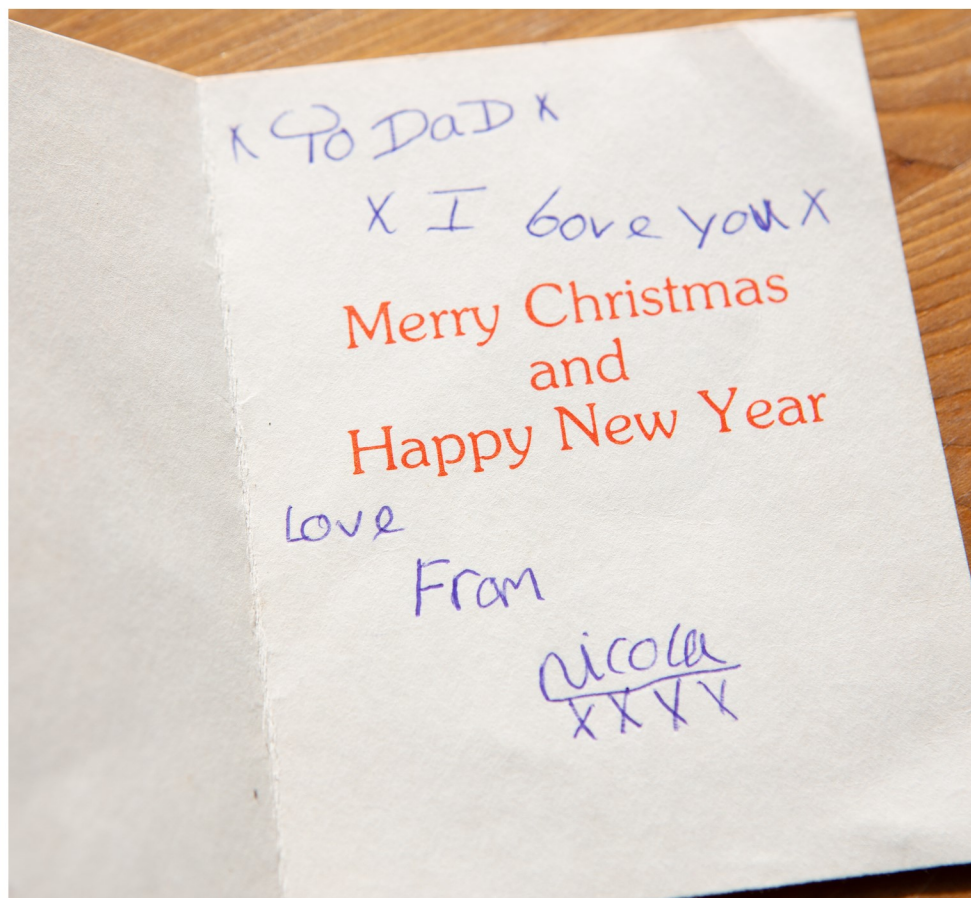 x To DaD x
x I love you x
Merry Christmas
and
Happy New Year
Love
From
nicola
xxxx